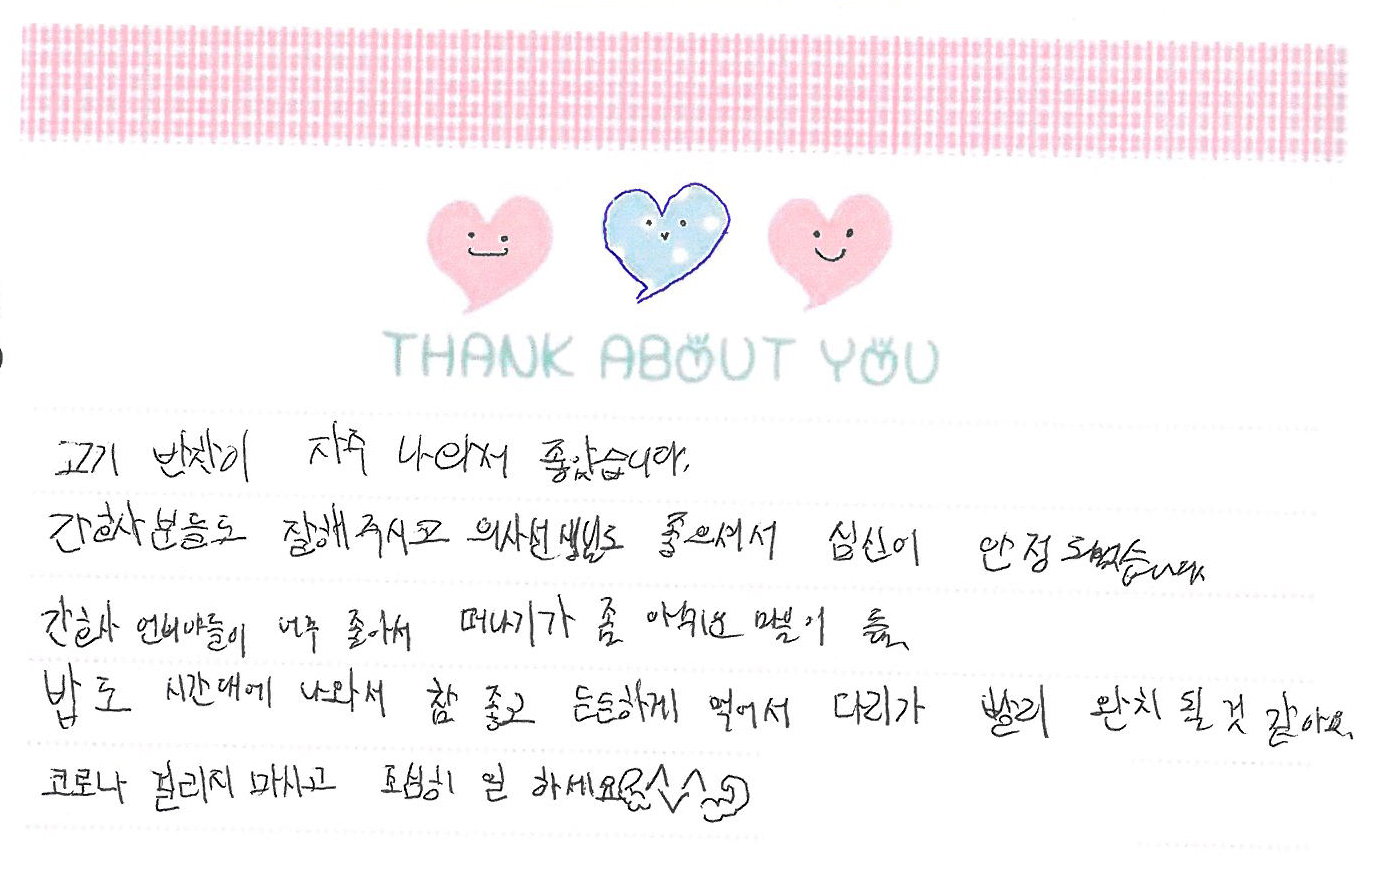 THANK ABOUT YOU
고기 반찬이 자주 나와서 좋았습니다.
간호사분들도 잘해주시고 의사선생님도 좋으셔서 심신이 안정되었습니다
간호사 언니야들이 너무 좋아서 떠나기가 좀 아쉬운 마음이 듦.
밥도 시간대에 나와서 참 좋고 든든하게 먹어서 다리가 빨리 완치 될 것 같아요.
코로나 걸리지 마시고 조심히 일 하세요